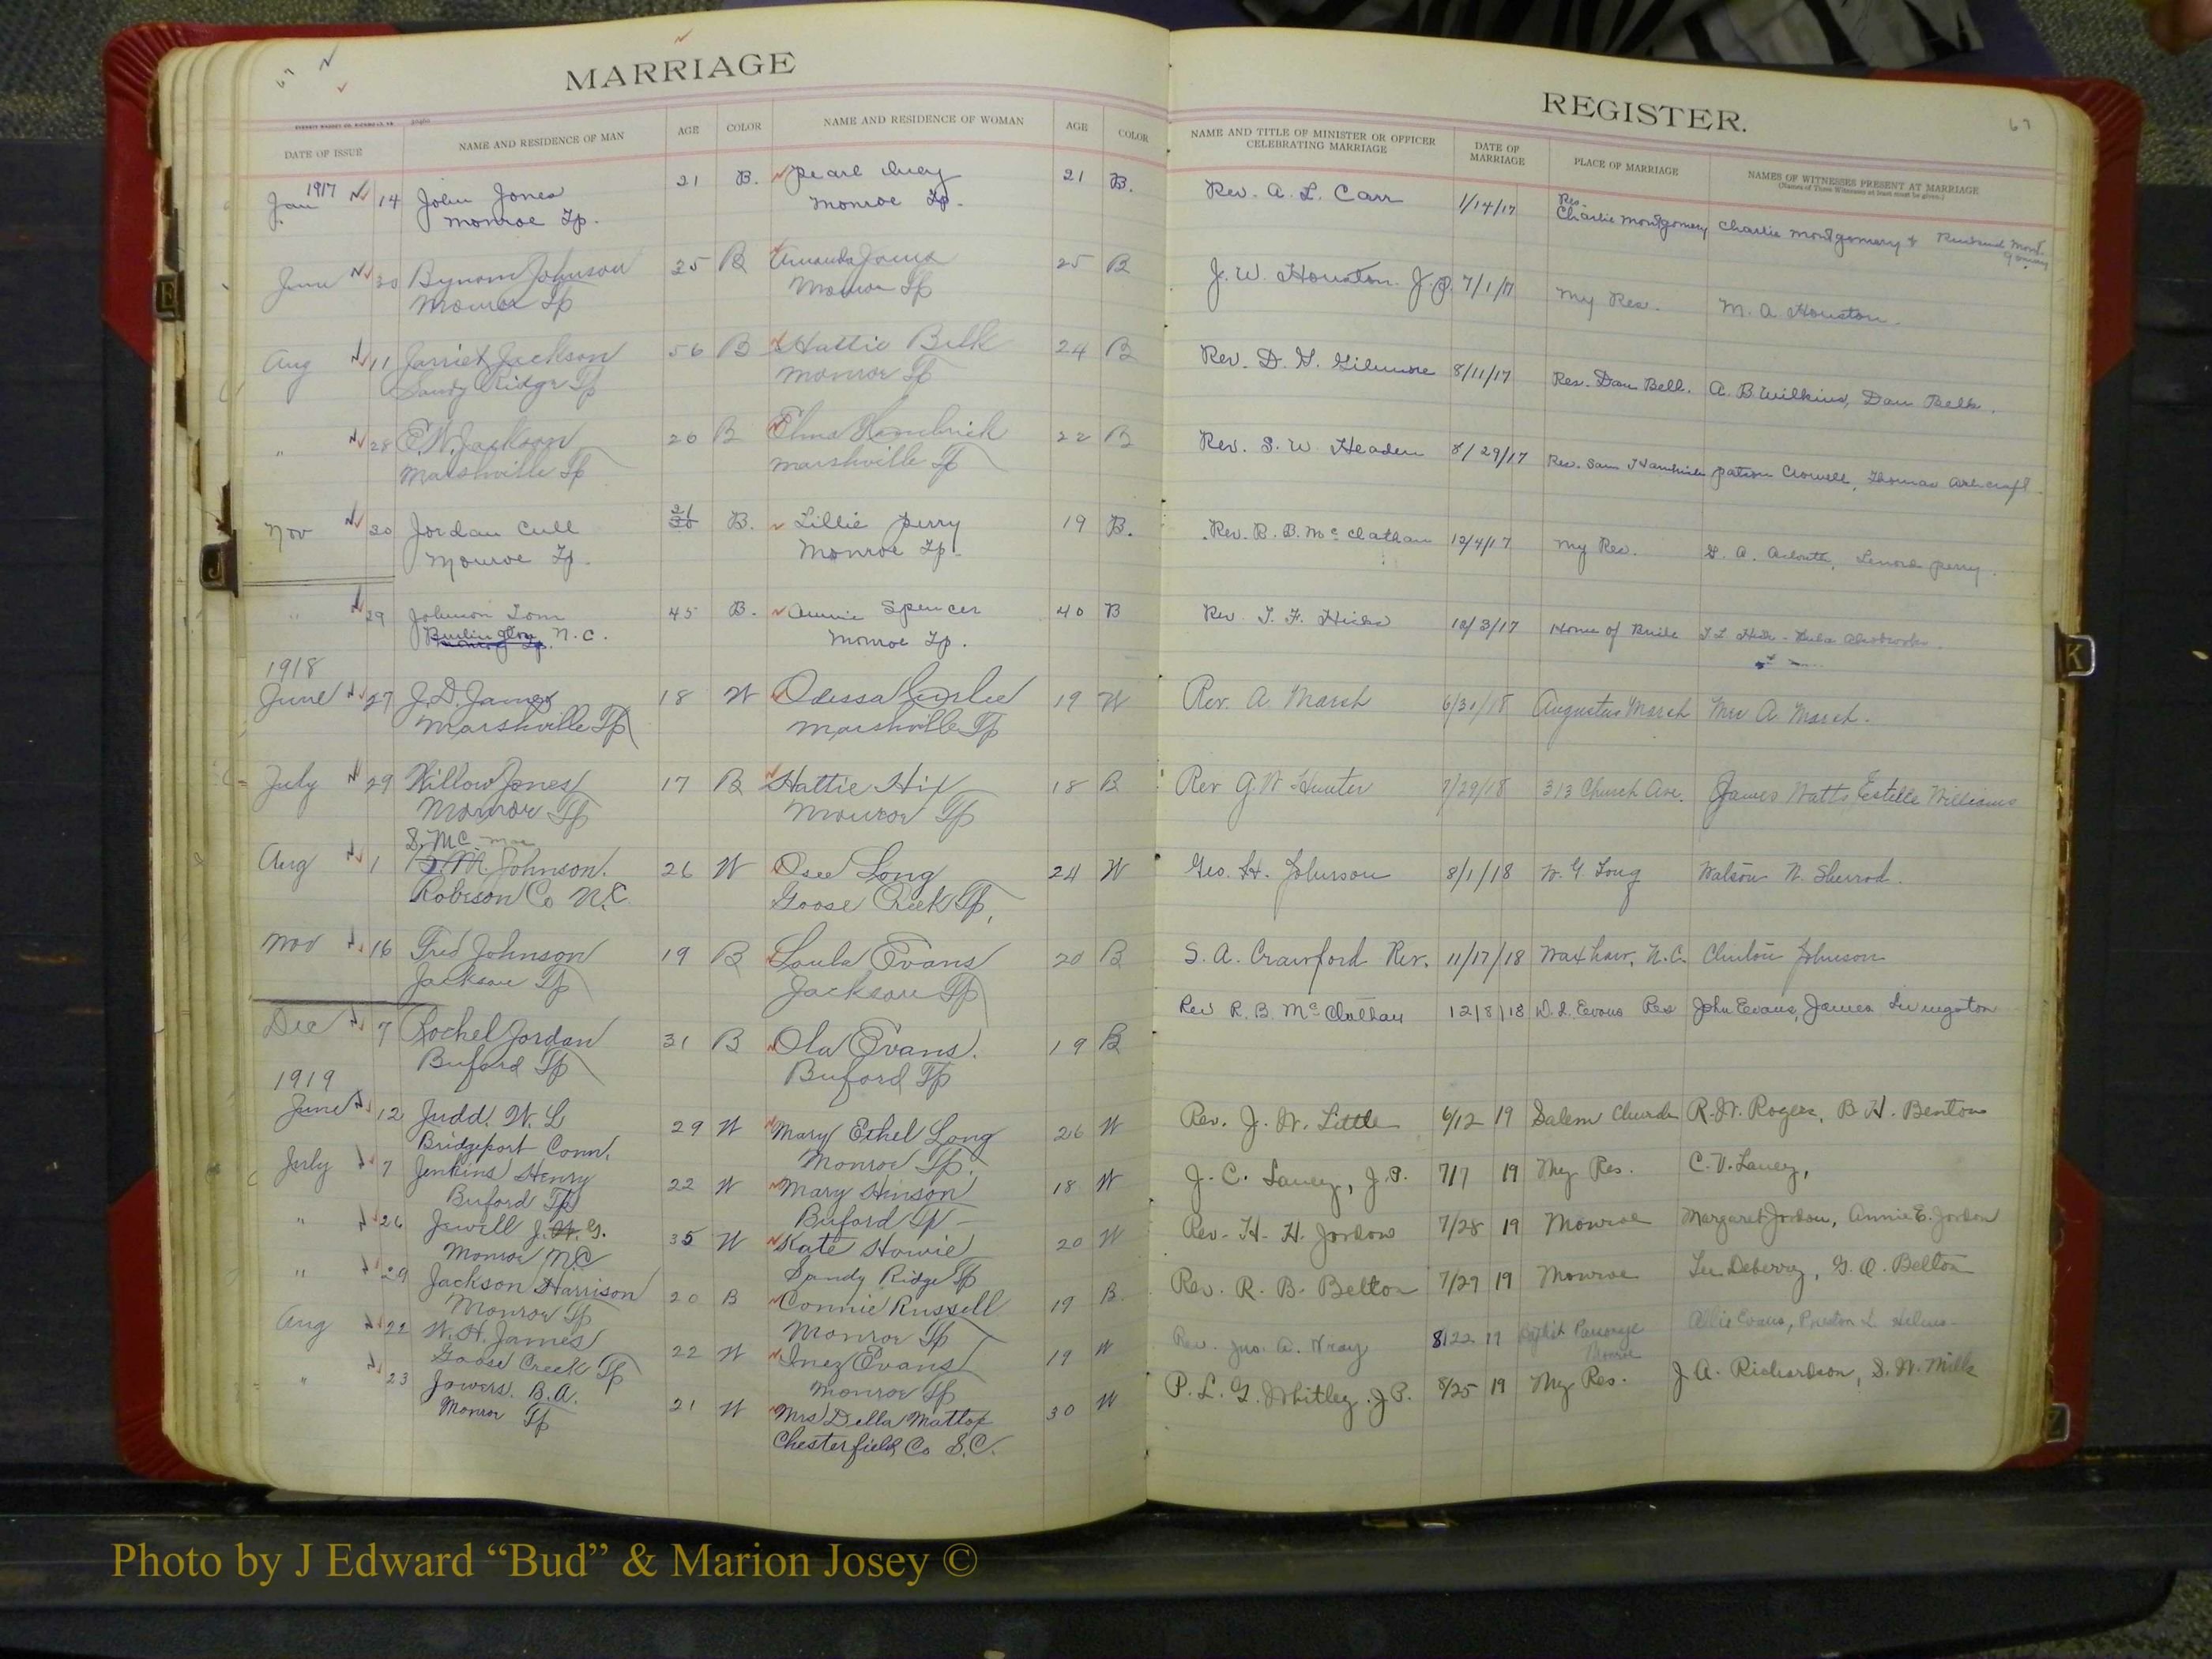 MARRIAGE
REGISTER.
67
67
EVERETT WADDEY CO. RICHMOND, VA
DATE OF ISSUE NAME AND RESIDENCE OF MAN AGE COLOR NAME AND RESIDENCE OF WOMAN AGE COLOR NAME AND TITLE OF MINISTER OR OFFICER CELEBRATING MARRIAGE DATE OF MARRIAGE PLACE OF MARRIAGE NAMES OF WITNESSES PRESENT AT MARRIAGE
(Names of Three Witnesses at least must be given.)
1917
Jan 14 John Jones 21 B. Pearl 21 B. Rev. A. L. Carr 1/14/17 Res. Charlie Montgomery Charlie Montgomery &
Monroe Tp. Monroe Tp.
June 30 Bynom Johnson 25 B Amanda 25 B J. W. Houston J.P. 7/1/17 My Res. M. A. Houston.
Monroe Tp Monroe Tp
Aug 11 Jackson 56 B Hattie Belk 24 B Rev. D. G. Gilmore 8/11/17 Res. Dan Belk. A. B. Wilkins, Dan Belk.
Sandy Ridge Tp Monroe Tp
" 28 E. W. Jackson 26 B 22 B Rev. S. W. Headen 8/29/17 Res. Sam Crowell, Thomas Ashcraft
Marshville Tp Marshville Tp
Nov 30 Jordan Cull 21 B. Lillie Perry 19 B. Rev. R. B. McClathan 12/4/17 My Res. Lenora Perry.
Monroe Tp. Monroe Tp.
" 29 Johnson Tom 45 B. Annie Spencer 40 B Rev. T. F. Hicks 12/3/17 Home of Bride
Burlington N.C. Monroe Tp.
1918
June 27 J. D. James 18 W Odessa 19 W Rev. A. Marsh 6/31/18 Augustus Marsh Mrs A. Marsh.
Marshville Tp Marshville Tp
July 29 Willow Jones 17 B Hattie Hix 18 B Rev G. W. Hunter 7/29/18 313 Church Ave. James Watts, Estelle Williams
Monroe Tp Monroe Tp
S. Mc
Aug 1 Johnson. 26 W Osee Long 24 W Geo. H. Johnson 8/1/18 W. G. Long Watson N. Sherrod.
Robison Co N.C. Goose Creek Tp,
Nov 16 Fred Johnson 19 B Loula Evans 20 B S. A. Crawford Rev. 11/17/18 Waxhaw, N.C. Johnson
Jackson Tp Jackson Tp
Dec 7 Rochel Jordan 31 B Ola Evans. 19 B Rev R. B. McClathan 12/8/18 Evans Res John Evans, James Livingston
Buford Tp Buford Tp
1919
June 12 Judd. W. L 29 W Mary Ethel Long 26 W Rev. J. W. Little 6/12 19 Salem Church R. W. Rogers, B. H. Benton
Bridgeport Conn. Monroe Tp.
July 7 Jenkins Henry 22 W Mary Hinson 18 W J. C. Laney, J.P. 7/7 19 My Res. C. V. Laney,
Buford Tp Buford Tp
" 26 Jewell J. W. G. 35 W Kate Howie 20 W Rev. H. H. Jordan 7/28 19 Monroe Margaret Jordan, Annie E. Jordan
Monroe N.C Sandy Ridge Tp
" 29 Jackson Harrison 20 B Connie Russell 19 B. Rev. R. B. Belton 7/29 19 Monroe Lee Deberry, G. Q. Belton
Monroe Tp Monroe Tp
Aug 22 W. H. James 22 W Inez Evans 19 W Rev. Jno. A. Wray 8/22 19 Baptist Parsonage Monroe Allie Evans, Preston L Helms
Goose Creek Tp Monroe Tp
" 23 Jowers. B. A. 21 W Mrs Della Mattox 30 W P. L. G. Whitley. J.P. 8/25 19 My Res. J. A. Richardson, S. W. Mills
Monroe Tp Chesterfield Co S.C.
E
J
K
Photo by J Edward “Bud” & Marion Josey ©